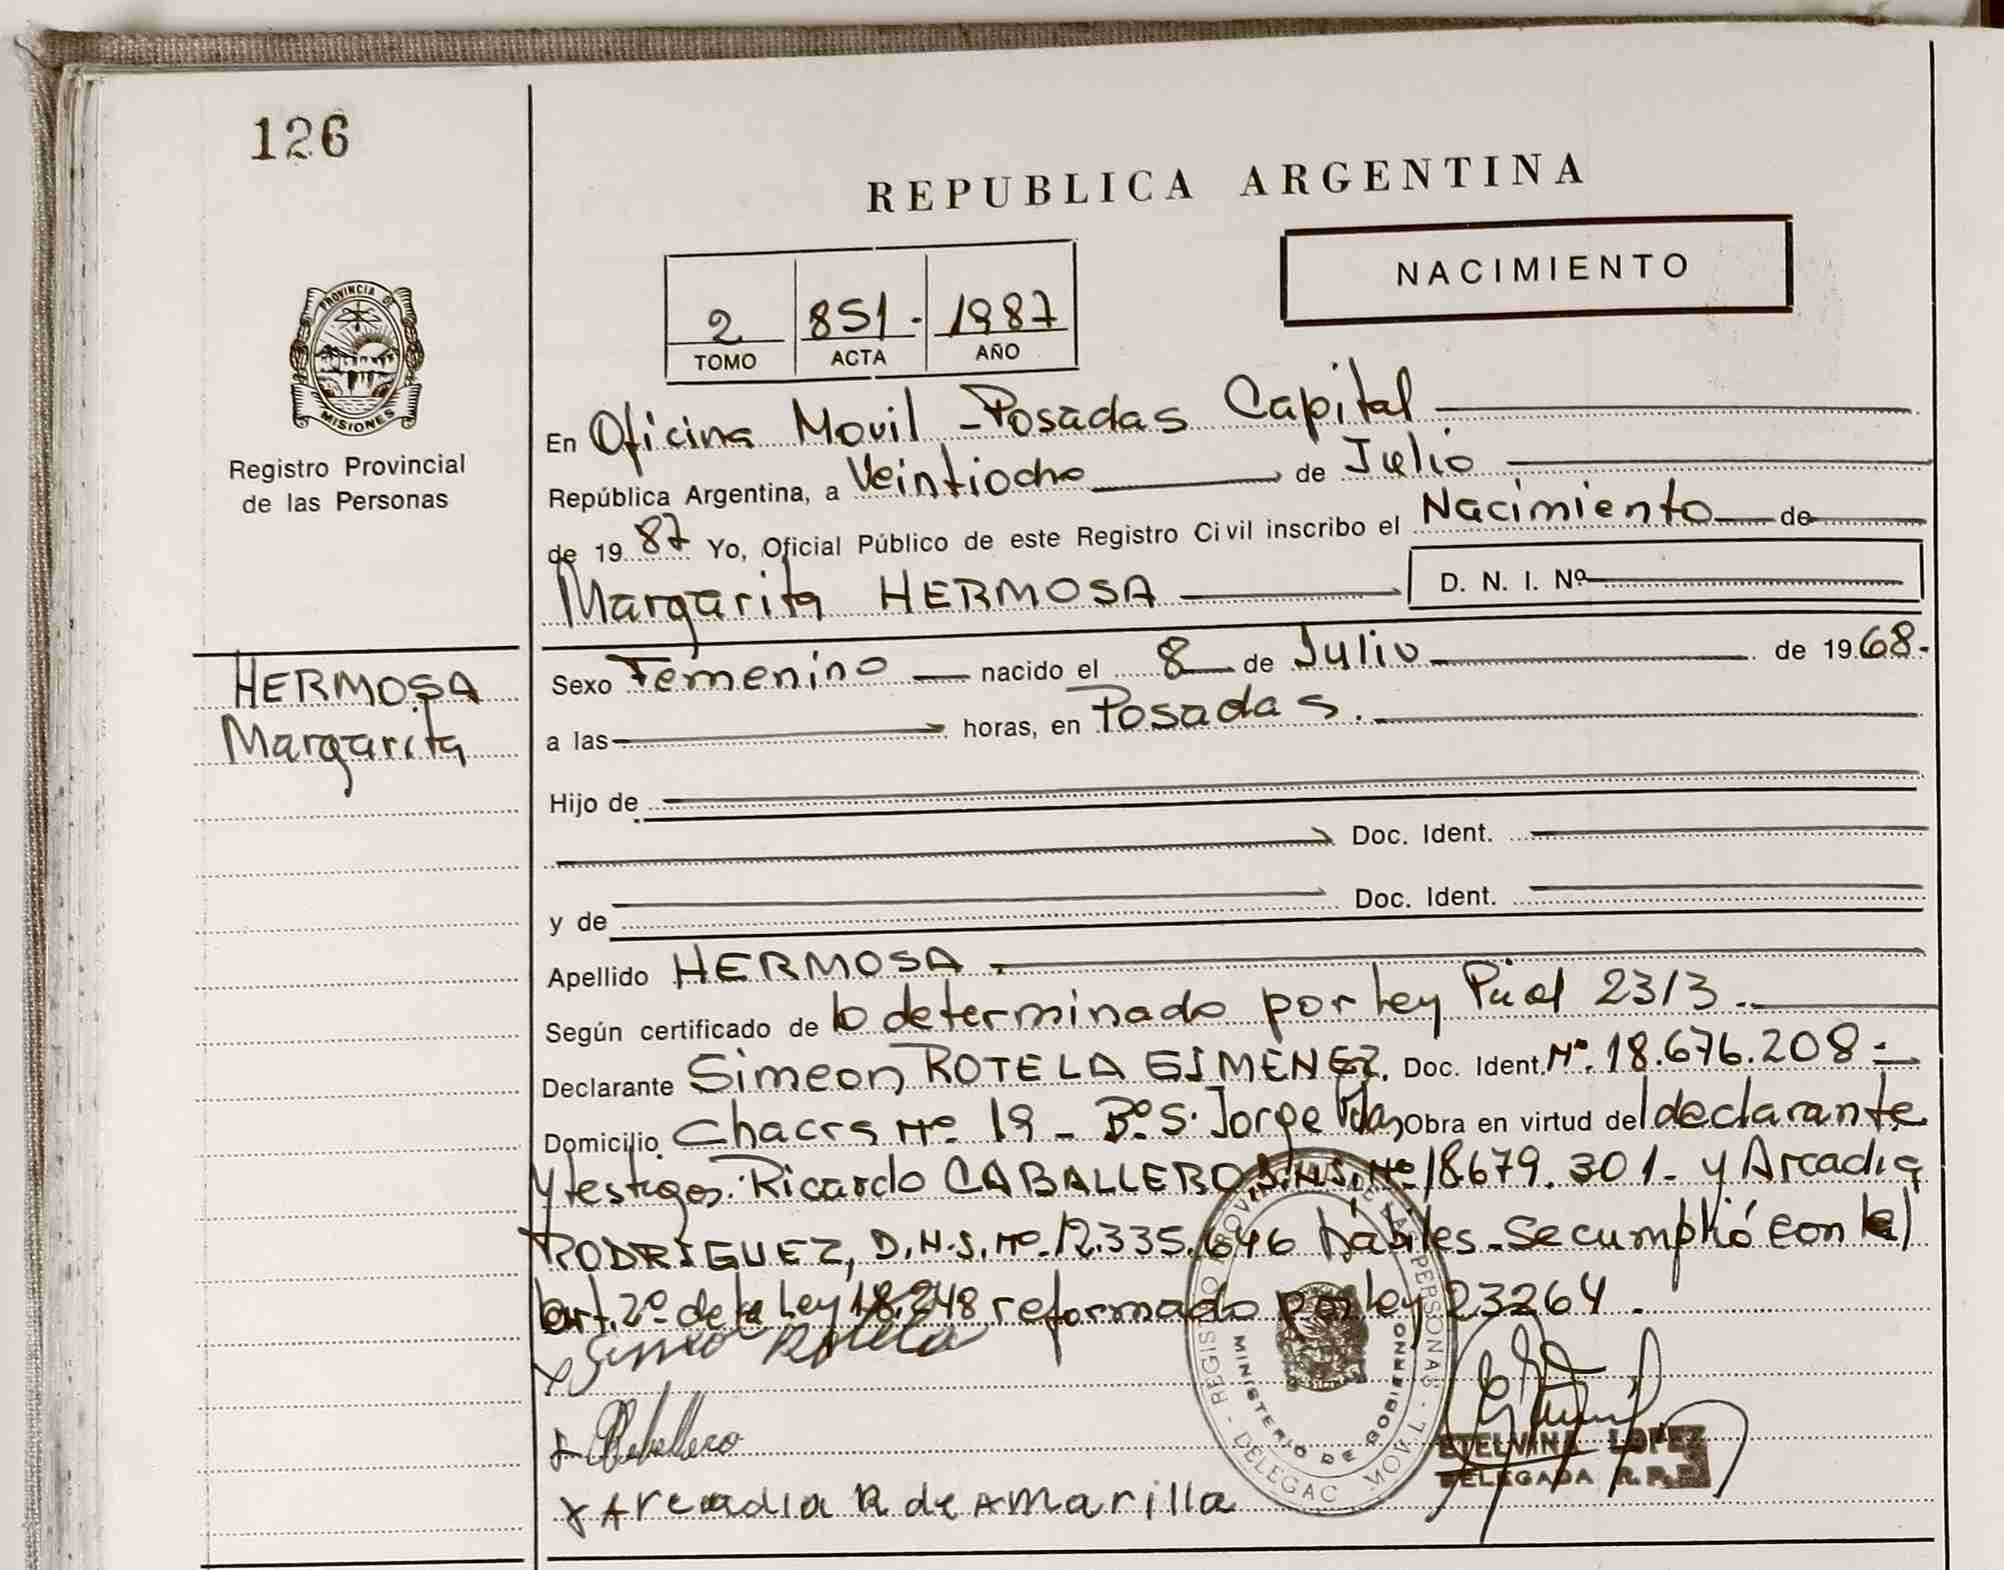 126
REPUBLICA ARGENTINA
NACIMIENTO
2 851.- 1987
TOMO ACTA AÑO
PROVINCIA DE
MISIONES
Registro Provincial
de las Personas
En Oficina Movil - Posadas Capital
República Argentina, a Veintiocho de Julio
de 1987 Yo, Oficial Público de este Registro Civil inscribo el Nacimiento de
Margarita HERMOSA D. N. I. Nº
HERMOSA
Margarita
Sexo Femenino nacido el 8 de Julio de 1968.-
a las horas, en Posadas.
Hijo de
Doc. Ident.
y de Doc. Ident.
Apellido HERMOSA.
Según certificado de lo determinado por Ley 2313.-
Declarante Simeon ROTELA GIMENEZ. Doc. Ident. Nº. 18.676.208.-
Domicilio Chacra Nº 19 - Bº S. Jorge Obra en virtud del declarante
y testigos: Ricardo CABALLERO Nº 18679.301.- y Arcadia
RODRIGUEZ, D.N.I. Nº 12.335.646 hábiles - Se cumplió con el
art. 2º de la Ley 18.248 reformado por ley 23264.
x Rotela
x Caballero
x Arcadia R de Amarilla
MINISTERIO DE GOBIERNO
ETELVINA LOPEZ
DELEGADA R.P.P.